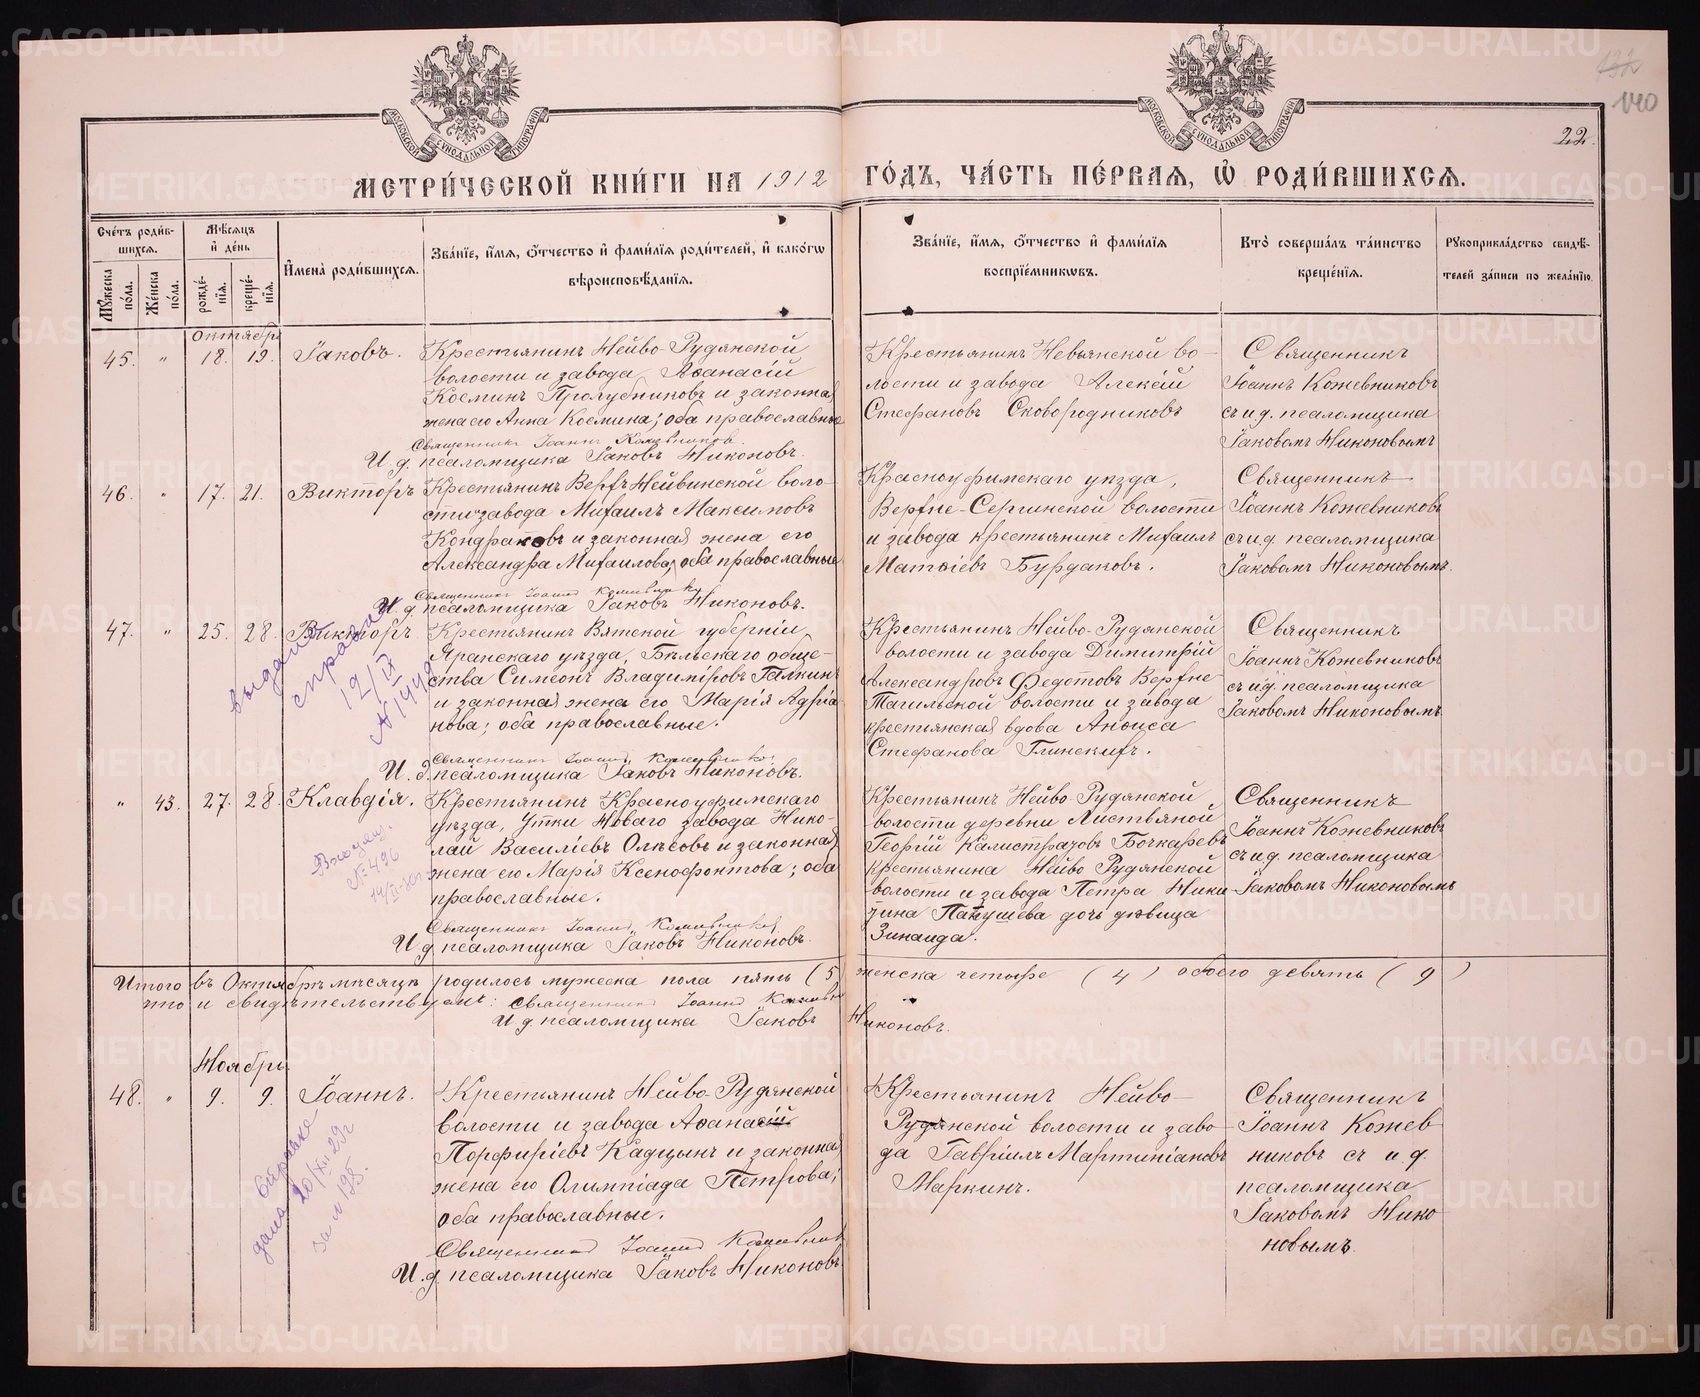 132
140
22.
МОСКОВСКОЙ СѴНОДАЛЬНОЙ ТИПОГРАФІИ
МОСКОВСКОЙ СѴНОДАЛЬНОЙ ТИПОГРАФІИ
МЕТРИ́ЧЕСКОЙ КНИ́ГИ НА 1912 ГО́ДЪ, ЧА́СТЬ ПЕ́РВАѦ, Ѽ РОДИ́ВШИХСѦ.
Сче́тъ роди́в-
шихсѧ.
Мꙋ́жеска по́ла.
Же́нска по́ла.
Мѣ́сѧцъ и҆ де́нь
рожде́-
нїѧ.
креще́-
нїѧ.
И҆мена̀ роди́вшихсѧ.
Зва́нїе, и҆́мѧ, ѻ҆́тчество и҆ фами́лїѧ роди́телей, и҆ како́гѡ
вѣроисповѣ́данїѧ.
Зва́нїе, и҆́мѧ, ѻ҆́тчество и҆ фами́лїѧ
воспрїе́мникѡвъ.
Кто̀ соверша́лъ та́инство
креще́нїѧ.
Рꙋкоприкла́дство свидѣ́-
телей за́писи по жела́нїю.
Октябрь
45. " 18. 19. Іаковъ.
Крестьянинъ Нейво-Рудянской
волости и завода Аѳанасій
Косминъ Пролубниковъ и законная
жена его Анна Космина; оба православные
Священникъ Іоаннъ Кожевниковъ.
И. д. псаломщика Іаковъ Никоновъ.
Крестьянинъ Невьянской во-
лости и завода Алексѣй
Стефановъ Сковородниковъ
Священникъ
Іоаннъ Кожевниковъ
съ и д. псаломщика
Іаковомъ Никоновымъ
46. " 17. 21. Викторъ
Крестьянинъ Верхъ-Нейвинской воло-
сти и завода Михаилъ Максимовъ
Кондраковъ и законная жена его
Александра Михаилова, оба православные
Священникъ Іоаннъ Кожевниковъ
И. д. псаломщика Іаковъ Никоновъ.
Красноуфимскаго уѣзда,
Верхне-Сергинской волости
и завода крестьянинъ Михаилъ
Матѳіевъ Бурдаковъ.
Священникъ
Іоаннъ Кожевниковъ
съ и д. псаломщика
Іаковомъ Никоновымъ.
47. " 25. 28. Викторъ
выдана
справка
12/IX
N 1449
Крестьянинъ Вятской губерніи
Яранскаго уѣзда, Бѣльскаго обще-
ства Симеонъ Владиміровъ Галкинъ
и законная жена его Марія Адріа-
нова; оба православные.
Священникъ Іоаннъ Кожевниковъ
И. д. псаломщика Іаковъ Никоновъ.
Крестьянинъ Нейво-Рудянской
волости и завода Димитрій
Александровъ Федотовъ Верхне-
Тагильской волости и завода
крестьянская вдова Анѳиса
Стефанова Глинскихъ.
Священникъ
Іоаннъ Кожевниковъ
съ и д. псаломщика
Іаковомъ Никоновымъ
" 43. 27. 28. Клавдія.
№ 496
Крестьянинъ Красноуфимскаго
уѣзда, Утки Новаго завода Нико-
лай Василіевъ Олѣсовъ и законная
жена его Марія Ксенофонтова; оба
православные.
Священникъ Іоаннъ Кожевниковъ
И д псаломщика Іаковъ Никоновъ.
Крестьянинъ Нейво-Рудянской
волости деревни Листвяной
Георгій Калистратовъ Бочкаревъ
крестьянина Нейво Рудянской
волости и завода Петра Ники-
тина Панушева дочь дѣвица
Зинаида.
Священникъ
Іоаннъ Кожевниковъ
съ и д. псаломщика
Іаковомъ Никоновымъ
Итого въ Октябрѣ мѣсяцѣ родилось мужеска пола пять (5) женска четыре (4) обоего девять (9)
что и свидѣтельствуемъ: Священникъ Іоаннъ Кожевник
И д. псаломщика Іаковъ Никоновъ.
Ноябрь
48. " 9. 9. Іоаннъ.
Справка
дана 20/XII 29г
за № 195.
Крестьянинъ Нейво-Рудянской
волости и завода Аѳанасій
Порфиріевъ Кадцынъ и законная
жена его Олимпіада Петрова;
оба православные.
Священникъ Іоаннъ Кожевник
И. д. псаломщика Іаковъ Никоновъ
Крестьянинъ Нейво-
Рудянской волости и заво-
да Гавріилъ Мартиніановъ
Маркинъ.
Священникъ
Іоаннъ Кожев
никовъ съ и д.
псаломщика
Іаковомъ Нико
новымъ.
METRIKI.GASO-URAL.RU